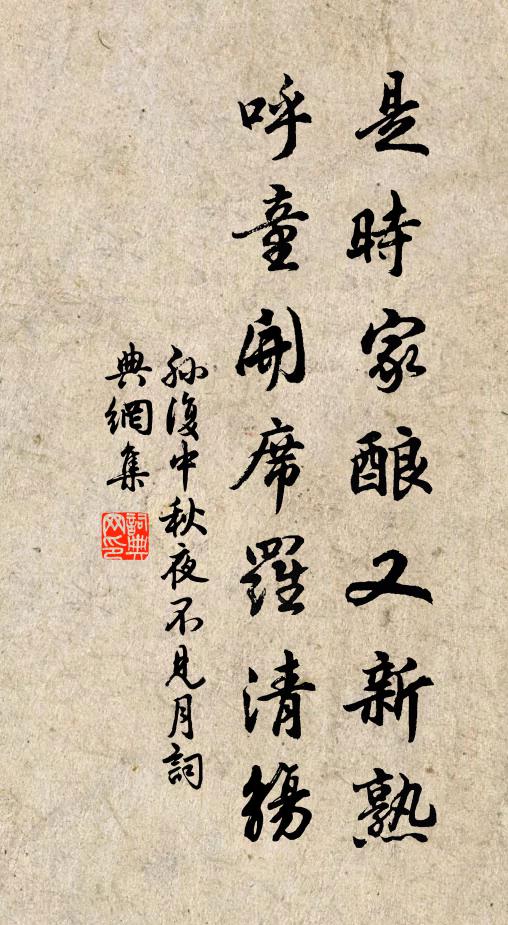 是時家酿又新熟
呼童開席羅清觴
孫復中秋夜不見月詞
典網集
詞典
网印